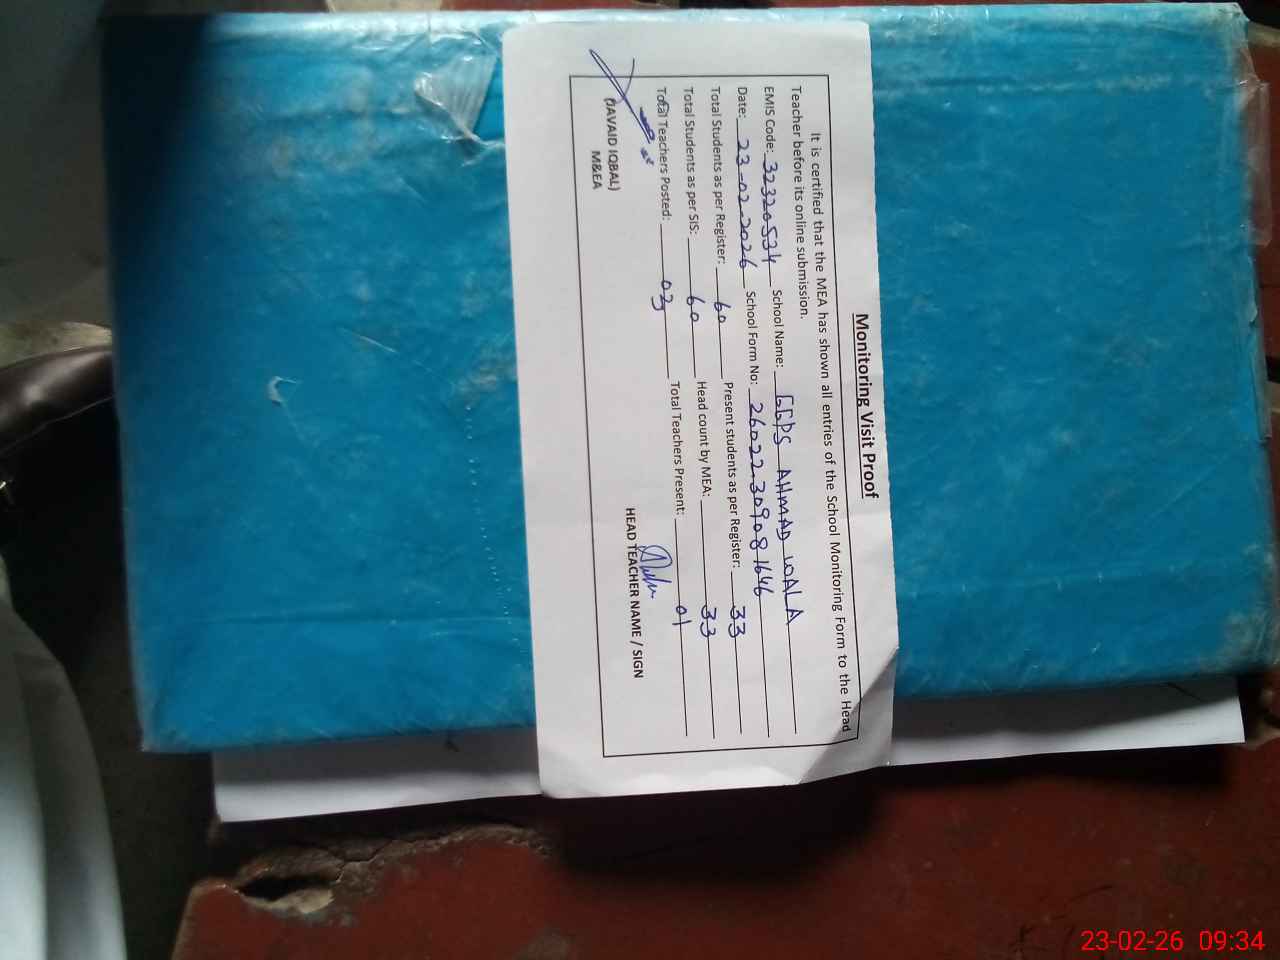 Monitoring Visit Proof
It is certified that the MEA has shown all entries of the School Monitoring Form to the Head
Teacher before its online submission.
EMIS Code: 32320534 School Name: GGPS AHMAD WALA
Date: 23-02-2026 School Form No: 26022309081646
Total Students as per Register: 60 Present students as per Register: 33
Total Students as per SIS: 60 Head count by MEA: 33
Total Teachers Posted: 03 Total Teachers Present: 01
(JAVAID IQBAL)
M&EA
HEAD TEACHER NAME / SIGN
23-02-26 09:34